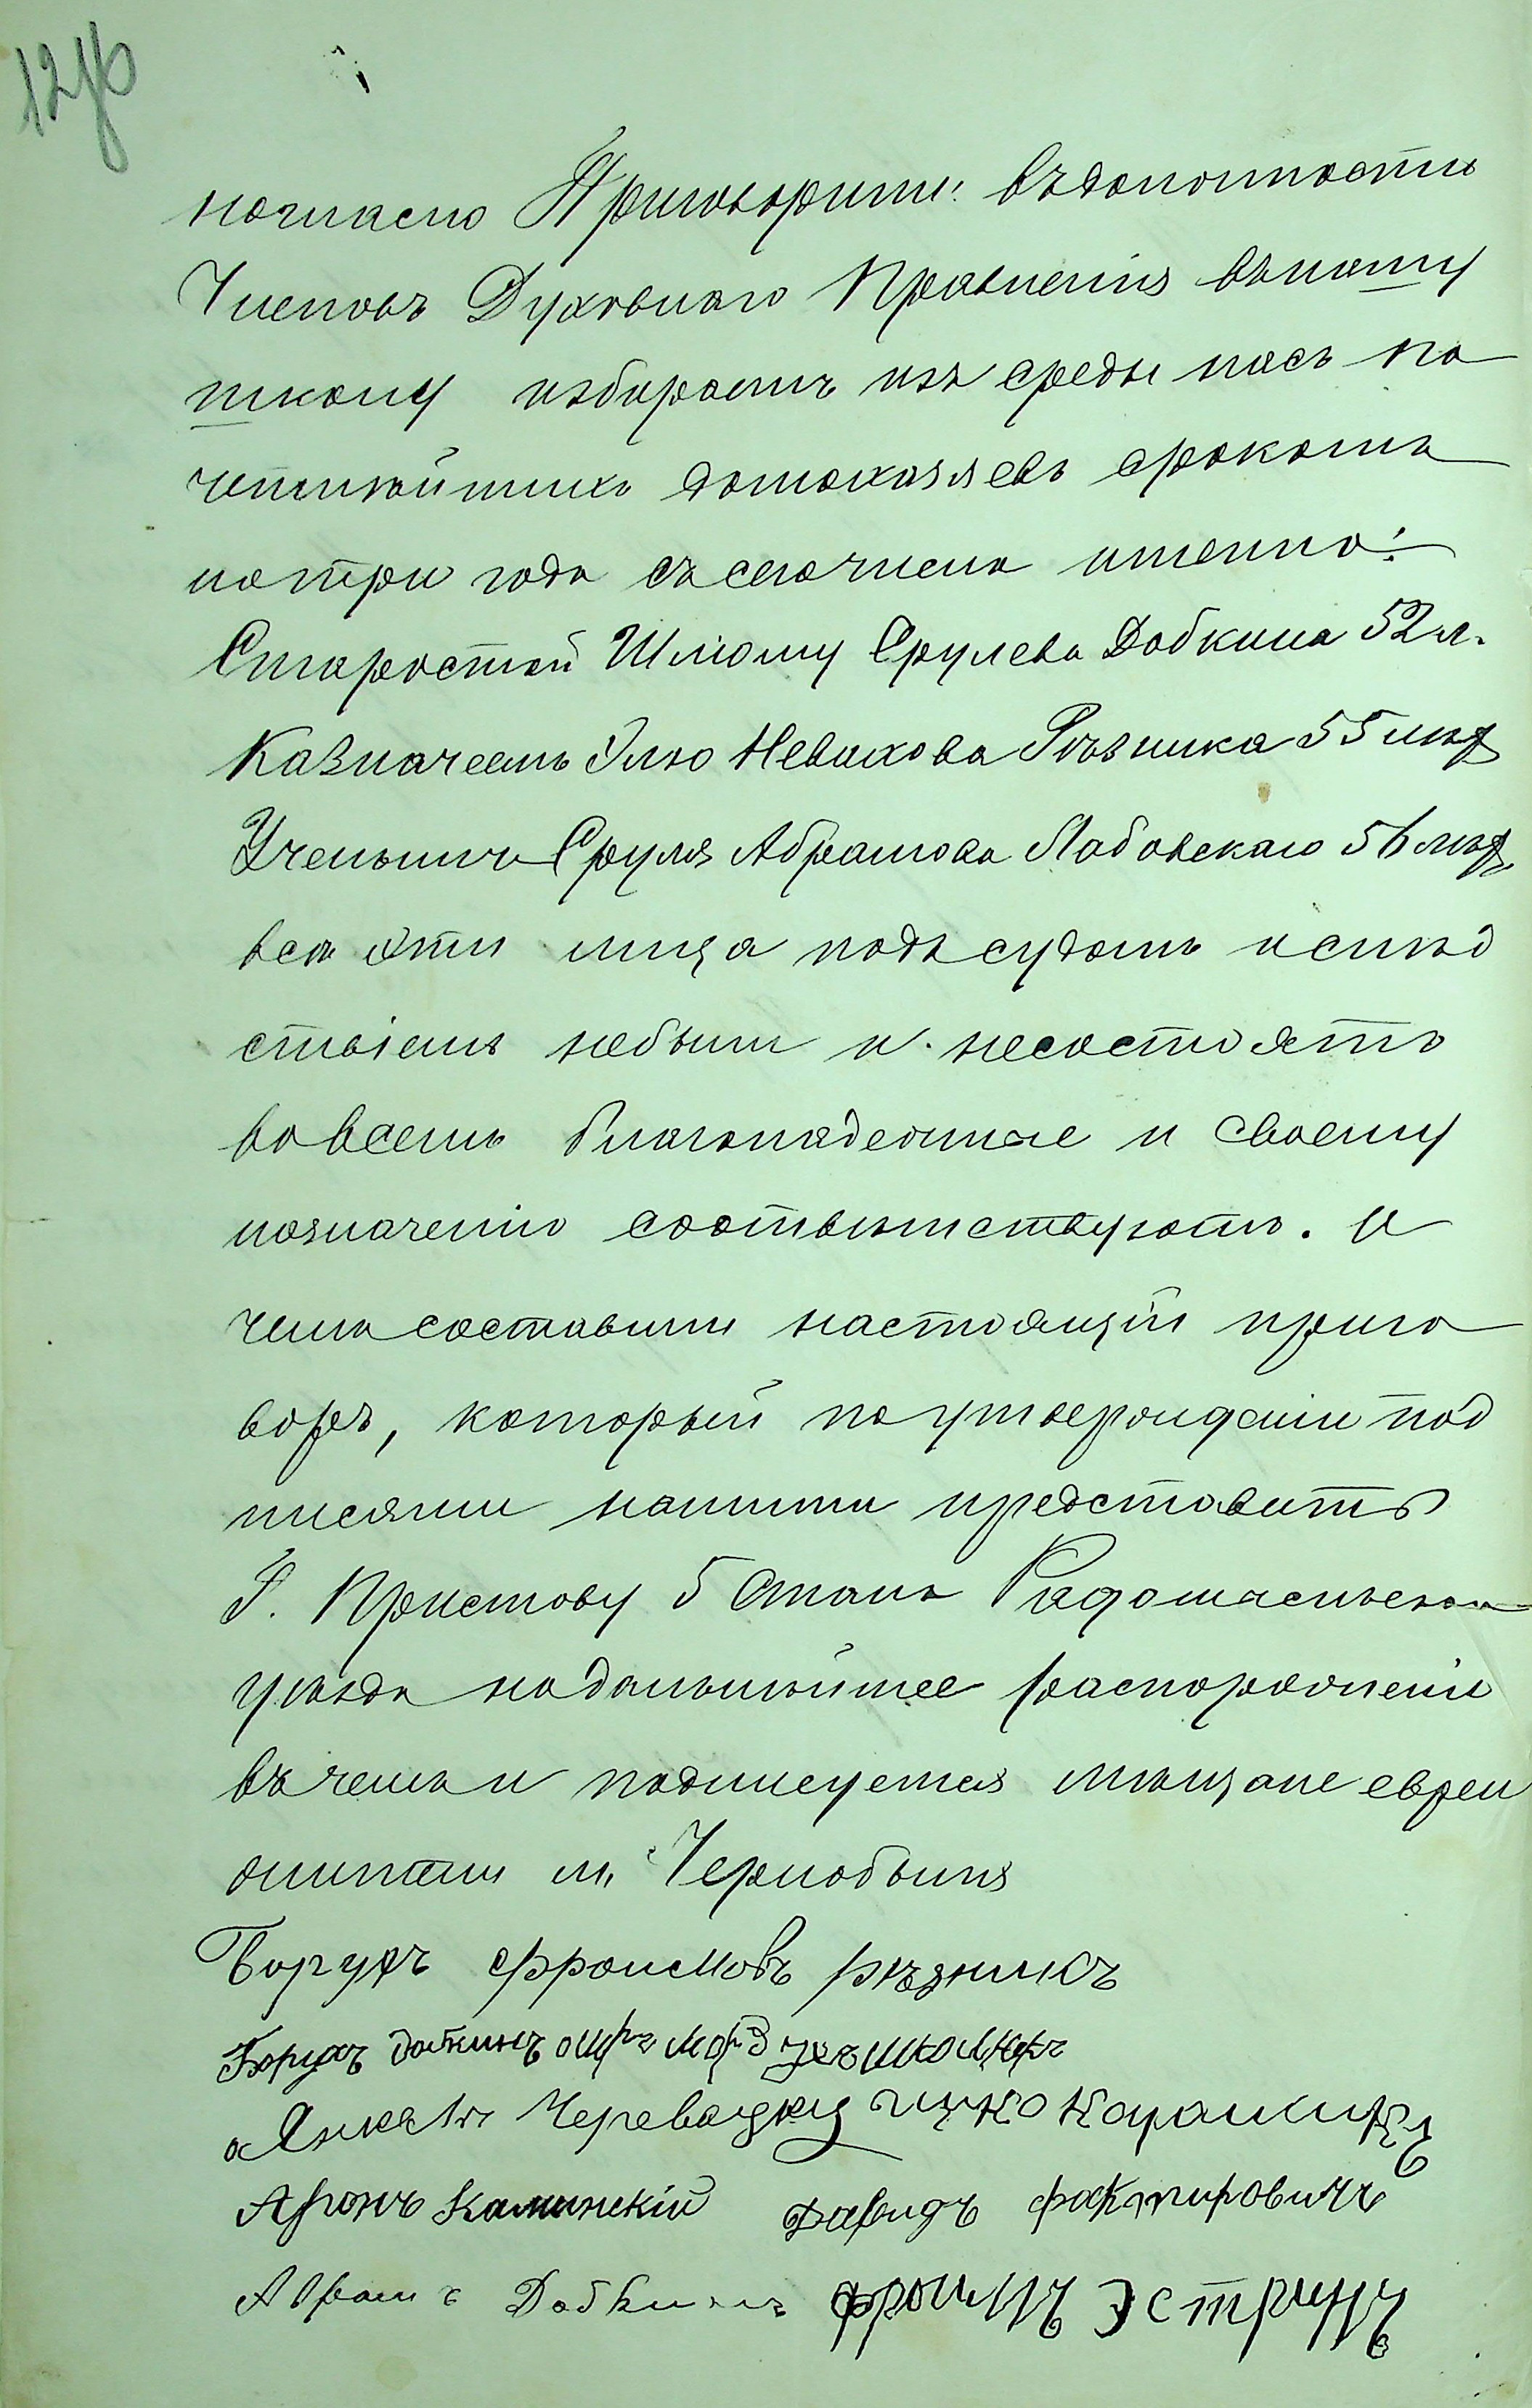 12об
согласно Приговорили: въ должности
Членовъ Духовнаго Правленія въ нашу
школу избираемъ изъ среды насъ по
четнѣйшихъ домохозяевъ срокомъ
на три года съ сего числа именно:
Старостой Шлюму Срулева Добкина 52 л.
Казначеемъ Элю Невахова Рѣзника 55 лѣтъ
Ученымъ Сруля Абрамова Лабовскаго 56 лѣтъ
всѣ эти лица подъ судомъ и слѣд
ствіемъ небыли и несостоятъ
во всемъ благонадежные и своему
назначенію соотвѣтствуютъ. О
чемъ составили настоящій приго
воръ, который по утвержденіи под
писями нашими представить
Г. Приставу 5 Стана Радомысльскаго
уѣзда на дальнѣйшее распоряженіе
въ чемъ и подписуемся мѣщане евреи
жители м. Чернобыля
Борухъ Фроимовъ рѣзникъ
Борухъ Добкинъ
Янкель Черевацкій Ицко
Аронъ Каминскій Давидъ Факторовичъ
Абрамъ Добкинъ Фроимъ Эстринъ